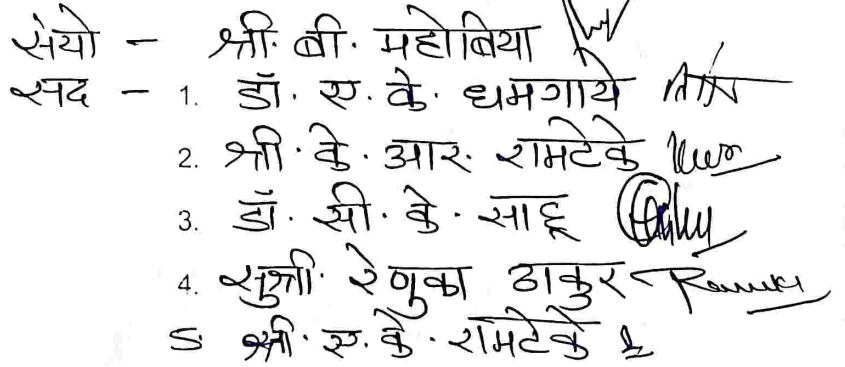 संयो - श्री. बी. महोबिया
सद - 1. डॉ. ए. के. धमगाये
2. श्री. के. आर. रामटेके
3. डॉ. सी. के. साहू
4. सुश्री. रेणुका ठाकुर
5 श्री. ए. के. रामटेके